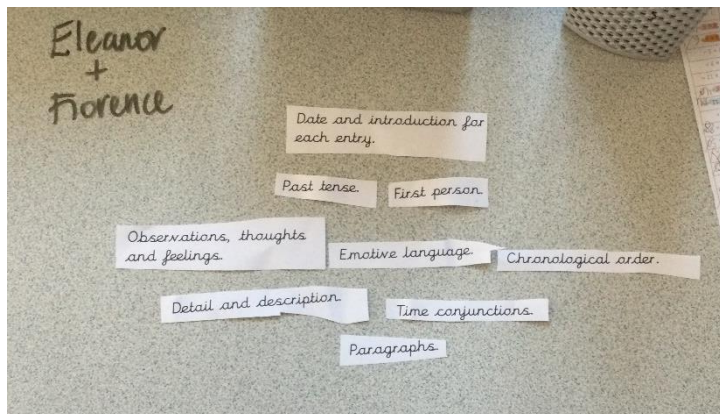 Eleanor
+
Florence
Date and introduction for
each entry.
Past tense.
First person.
Observations, thoughts
and feelings.
Emotive language.
Chronological order.
Detail and description.
Time conjunctions.
Paragraphs.